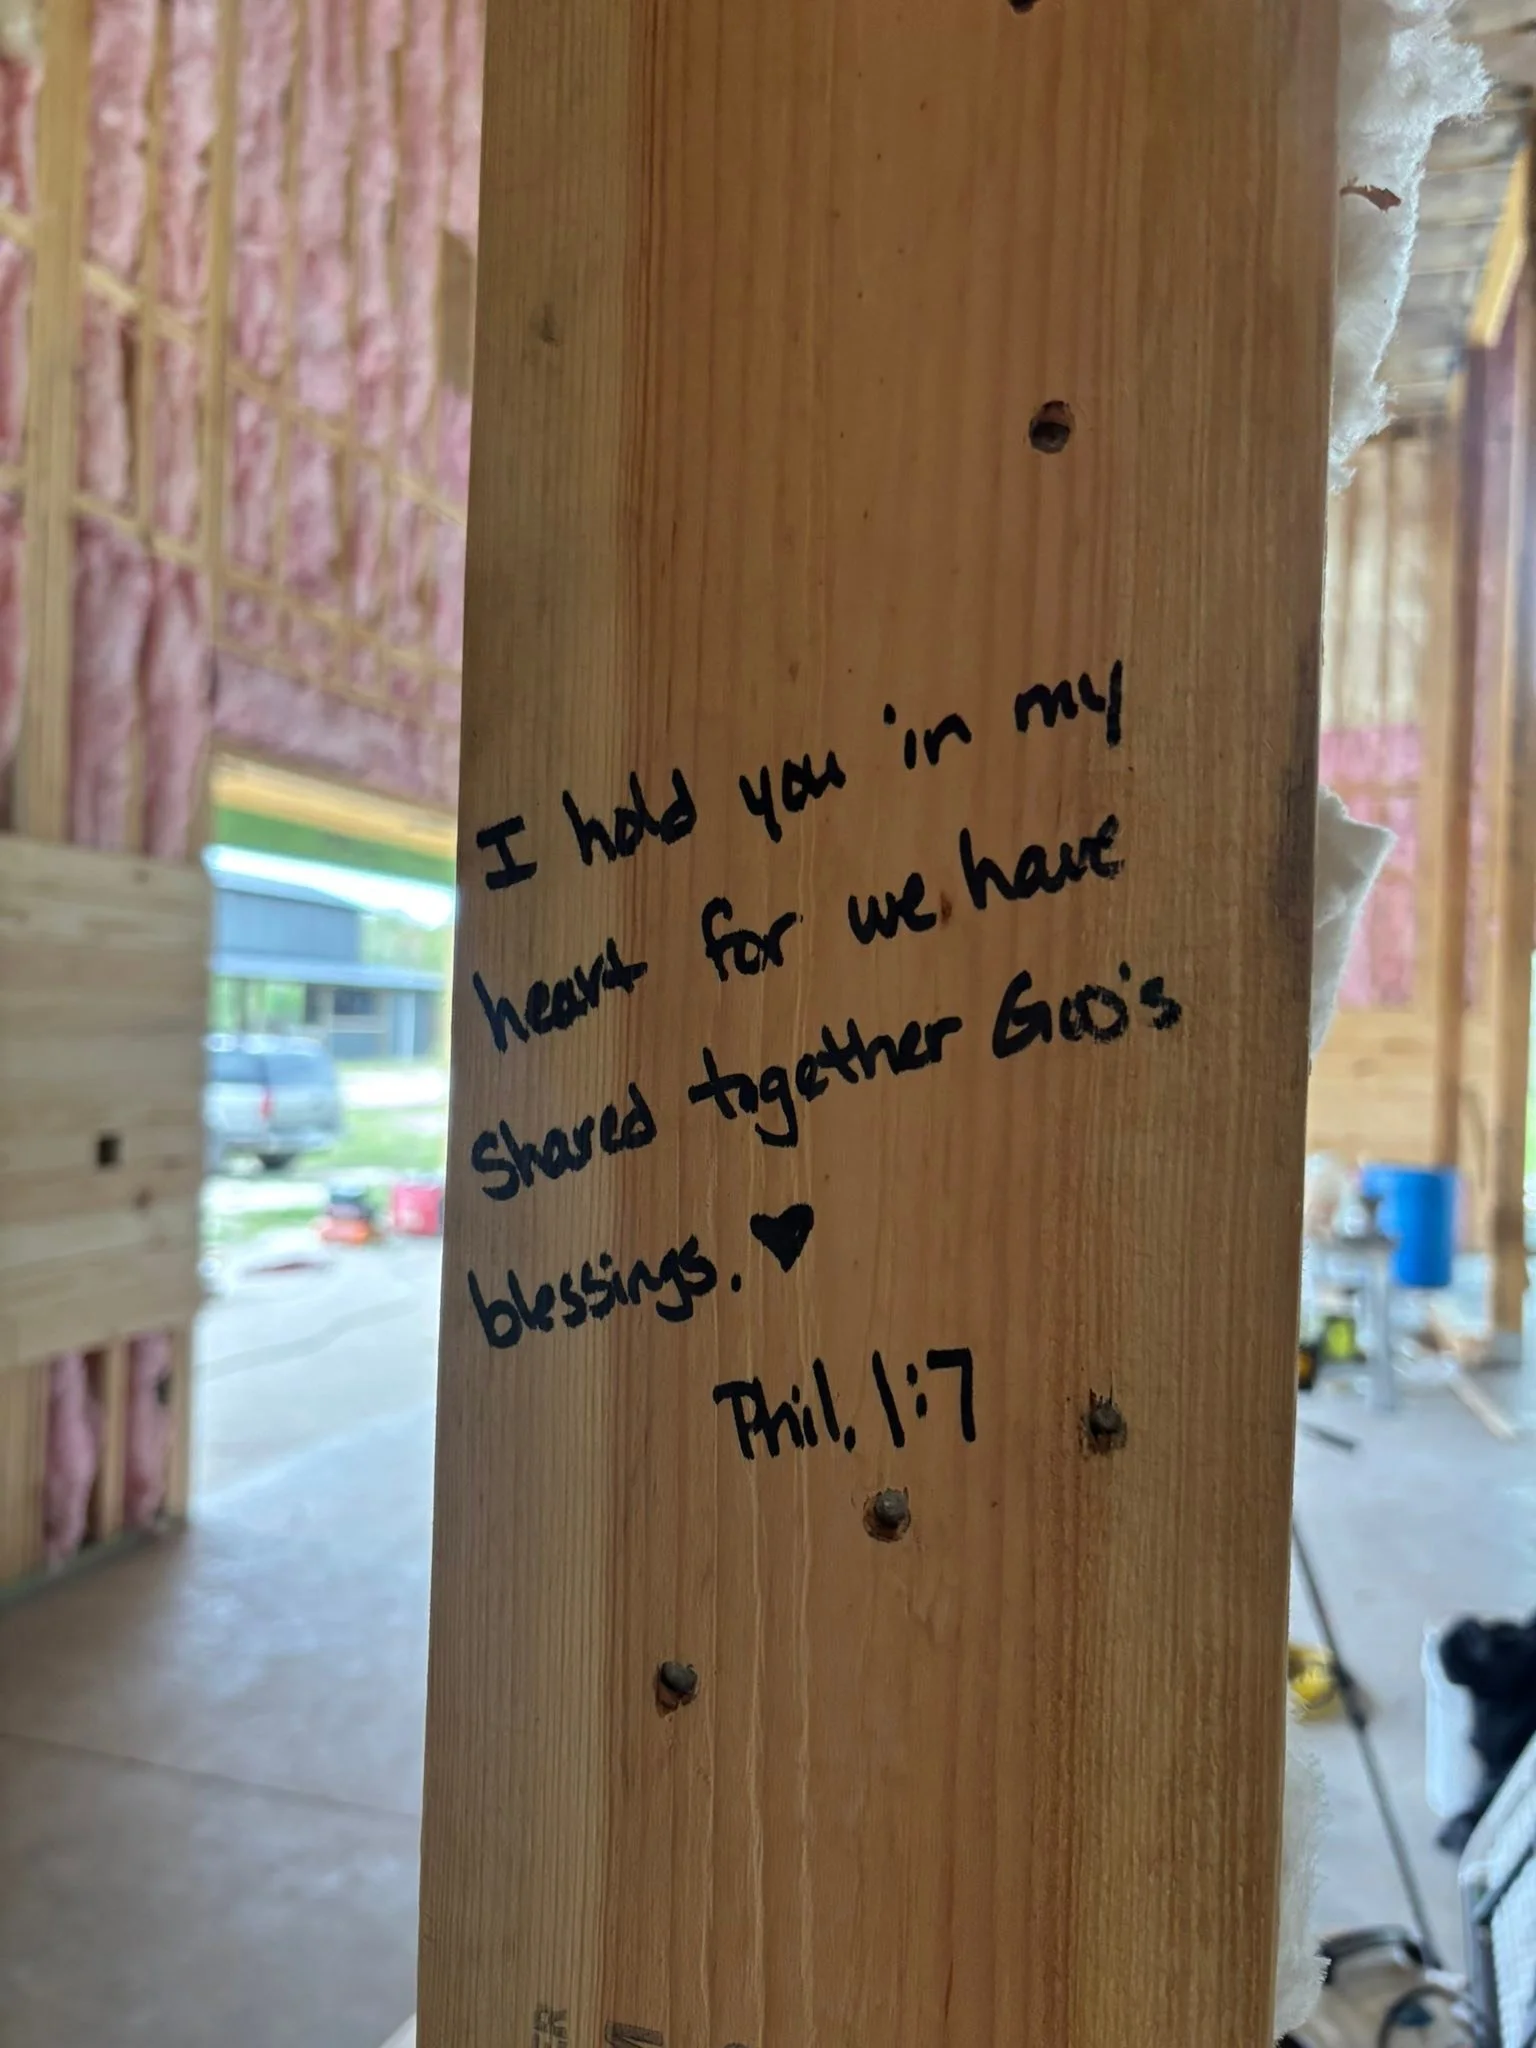 I hold you in my
heart for we have
shared together GOD's
blessings. ♥
Phil. 1:7